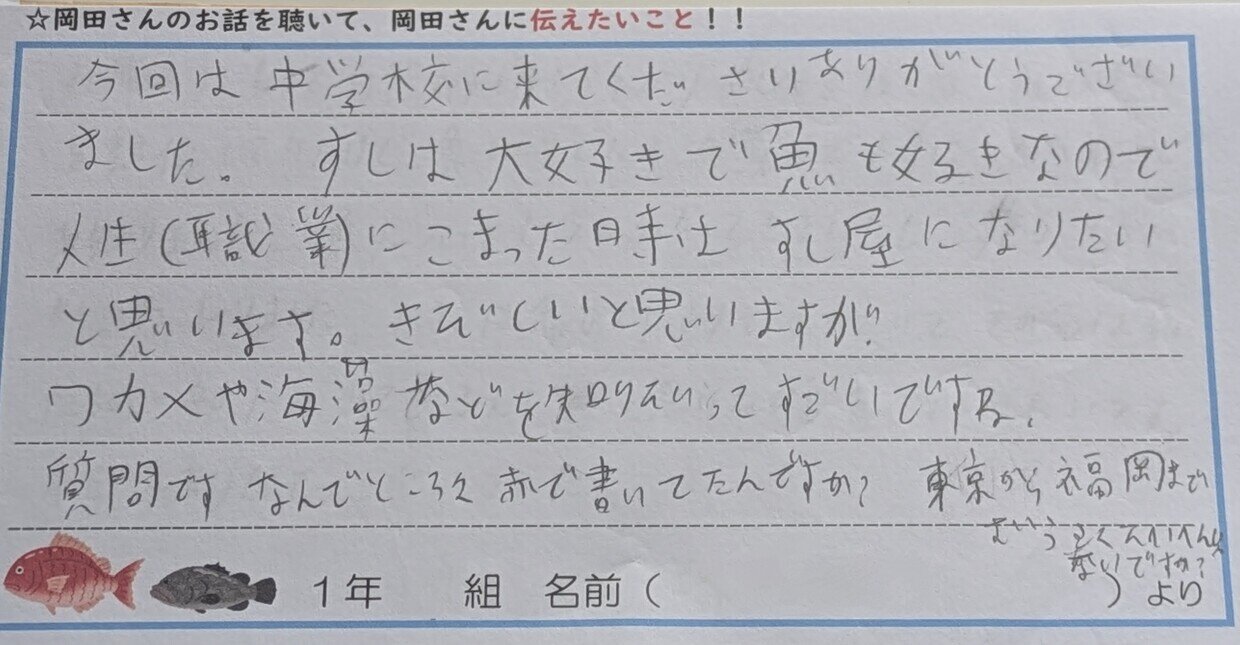 ☆岡田さんのお話を聴いて、岡田さんに伝えたいこと！！
今回は中学校に来てくださりありがとうござい
ました。 すしは大好きで魚も好きなので
人生(職業)にこまった時は すし屋になりたい
と思います。きびしいと思いますが?
ワカメや海藻などを知りたいってすごいですね、
質問です なんでところどころ赤で書いてたんですか? 東京から福岡まで
たいへんじゃ
ないですか?
1年 組 名前( ) より